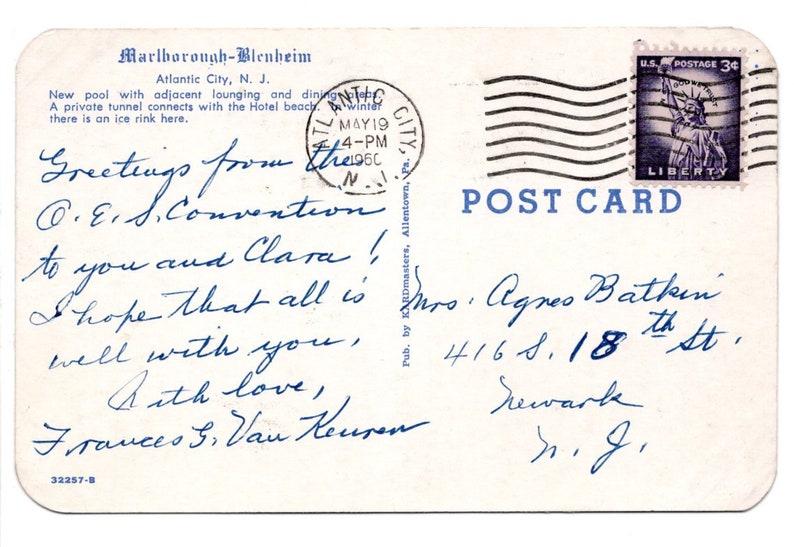 Marlborough-Blenheim
Atlantic City, N. J.
New pool with adjacent lounging and dining areas.
A private tunnel connects with the Hotel beach. winter
there is an ice rink here.
Greetings from the
O. E. S. Convention
to you and Clara!
I hope that all is
well with you,
With love,
Frances G. Van Keuren
32257-B
ATLANTIC CITY,
MAY 19
4-PM
1960
N. J.
Pub. by KARDmasters, Allentown, Pa.
U.S. POSTAGE 3¢
IN GOD WE TRUST
LIBERTY
POST CARD
Mrs. Agnes Batkin
416 S. 18th St.
Newark
N. J.